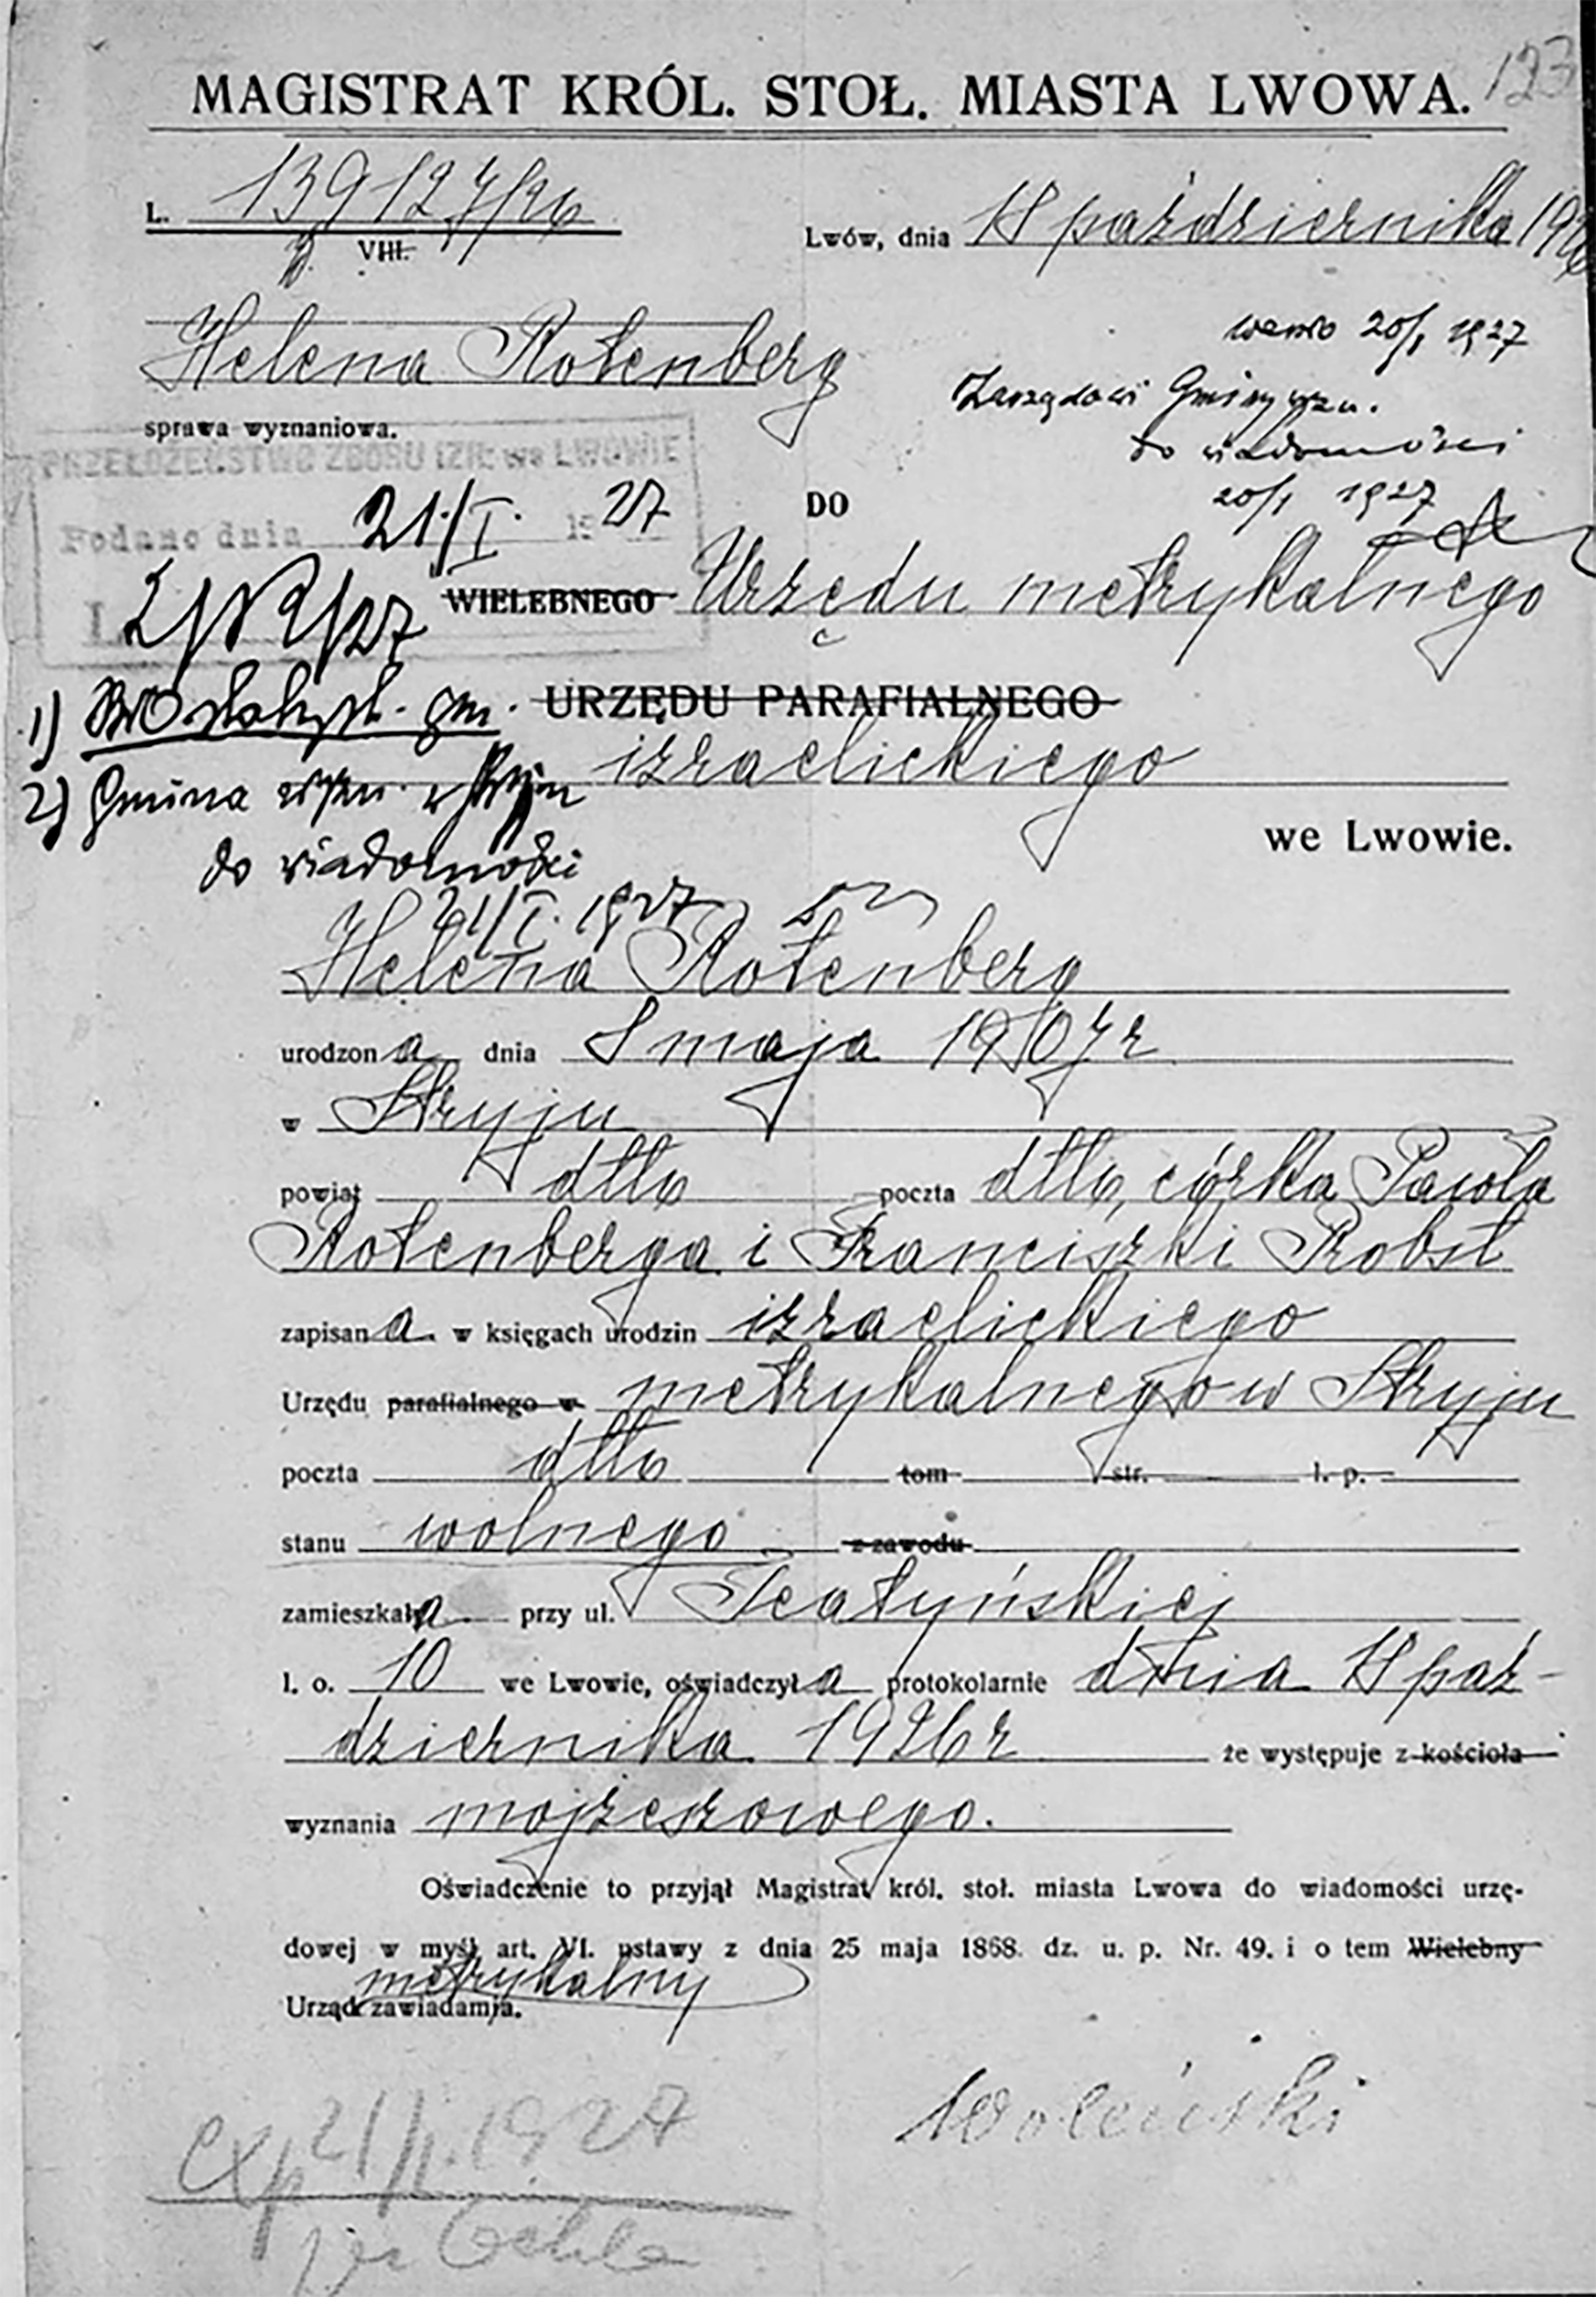 123
MAGISTRAT KRÓL. STOŁ. MIASTA LWOWA.
L. 139127/26
VIII.
Lwów, dnia 18 października 1926
Helena Rotenberg
sprawa wyznaniowa.
20/1 1927
Zarządowi Gminy wyzn.
do wiadomości
20/1 1927
PRZEŁOŻEŃSTWO ZBORU IZR. we LWOWIE
Podano dnia 21/I. 1927
L.
DO
WIELEBNEGO Urzędu metrykalnego
URZĘDU PARAFIALNEGO
izraelickiego
we Lwowie.
1) gm.
2) Gmina wyzn. w Stryju
do wiadomości
21/I. 1927
Helena Rotenberg
urodzona dnia 8 maja 1907 r
w Stryju
powiat dtto poczta dtto, córka Pawła
Rotenberga i Franciszki Probst
zapisana w księgach urodzin izraelickiego
Urzędu parafialnego w metrykalnego w Stryju
poczta dtto tom str. l. p.
stanu wolnego z zawodu
zamieszkała przy ul. Teatyńskiej
l. o. 10 we Lwowie, oświadczyła protokolarnie dnia 18 paź-
dziernika 1926 r że występuje z kościoła
wyznania mojżeszowego.
Oświadczenie to przyjął Magistrat król. stoł. miasta Lwowa do wiadomości urzę-
dowej w myśl art. VI. ustawy z dnia 25 maja 1868. dz. u. p. Nr. 49. i o tem Wielebny
metrykalny
Urząd zawiadamia.
Woleński
exp 21/I. 1927